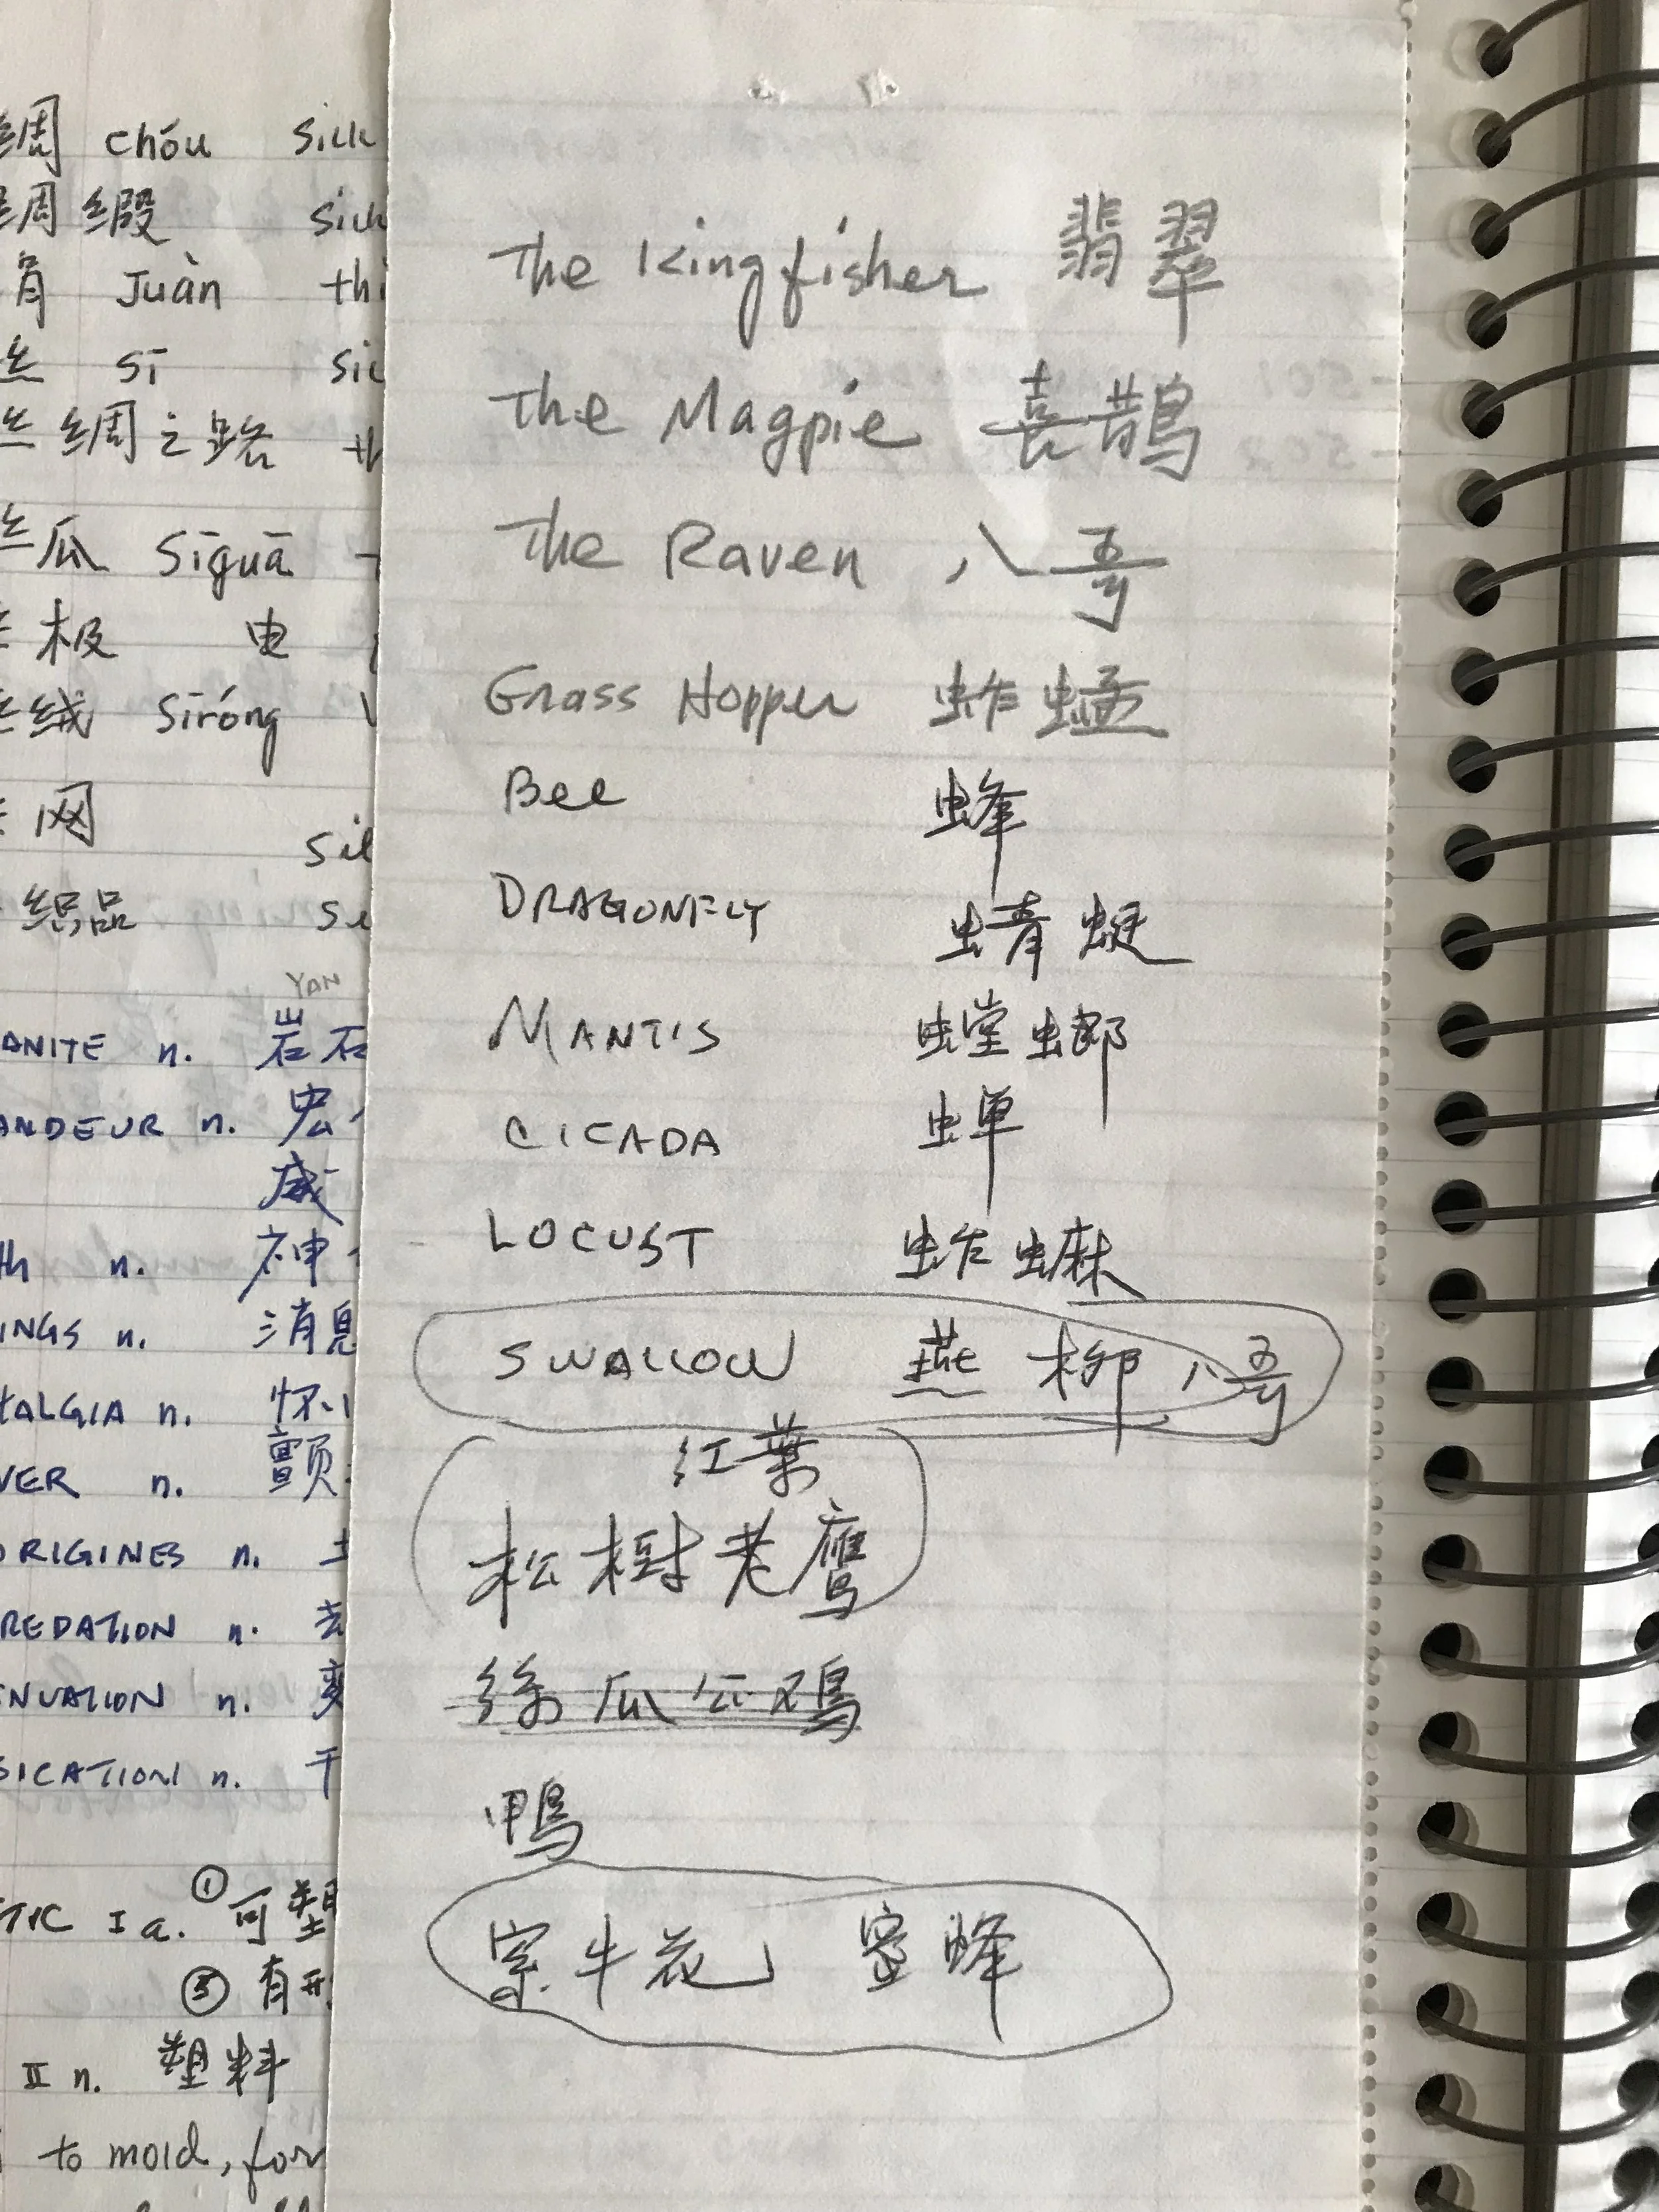 绸 chóu silk
绸缎 silk
Juàn thi
丝 sī sil
丝绸之路 th
丝瓜 sīguā
极 电
丝绒 síróng
网 sil
織品
YAN
ANITE n. 岩石
ANDEUR n. 宏
威
th n. 神
INGS n. 消息
TALGIA n. 怀
VER n. 颤
ORIGINES n. 土
REDATION n. 去
NUATION n. 变
SICATION n. 干
TIC I a. ① 可塑
③ 有形
II n. 塑料
to mold, for
The Kingfisher 翡翠
The Magpie 喜鹊
The Raven 八哥
Grass Hopper 蚱蜢
Bee 蜂
DRAGONFLY 蜻蜓
MANTIS 螳螂
CICADA 蝉
LOCUST 蚱蟔
SWALLOW 燕 柳八哥
红葉
松樹老鹰
絲瓜公鸡
鴨
牛花 蜜蜂